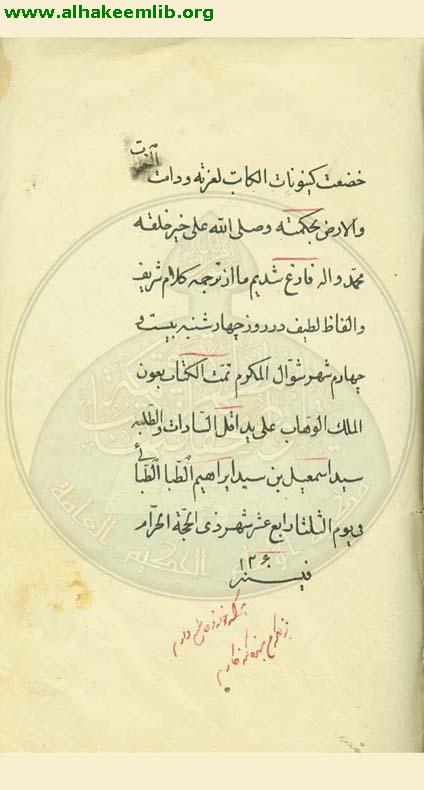 www.alhakeemlib.org
خضعت كينونات الكائنات لعزته ودامت السموات
والارض بحكمته وصلى الله على خير خلقه
محمد واله فارغ شديم ما از ترجمه كلام شريف
والفاظ لطيف در روز چهار شنبه بيست و
چهارم شهر شوال المكرم تمت الكتاب بعون
الملك الوهاب على يد اقل السادات والطلبه
سيد اسمعيل بن سيد ابراهيم الطبا الطبائى
فى يوم الثلثا رابع عشر شهر ذى الحجة الحرام
فى سنه ١٢٠٦
هركه خواند دعا طمع دارم
زانكه من بنده گنه كارم